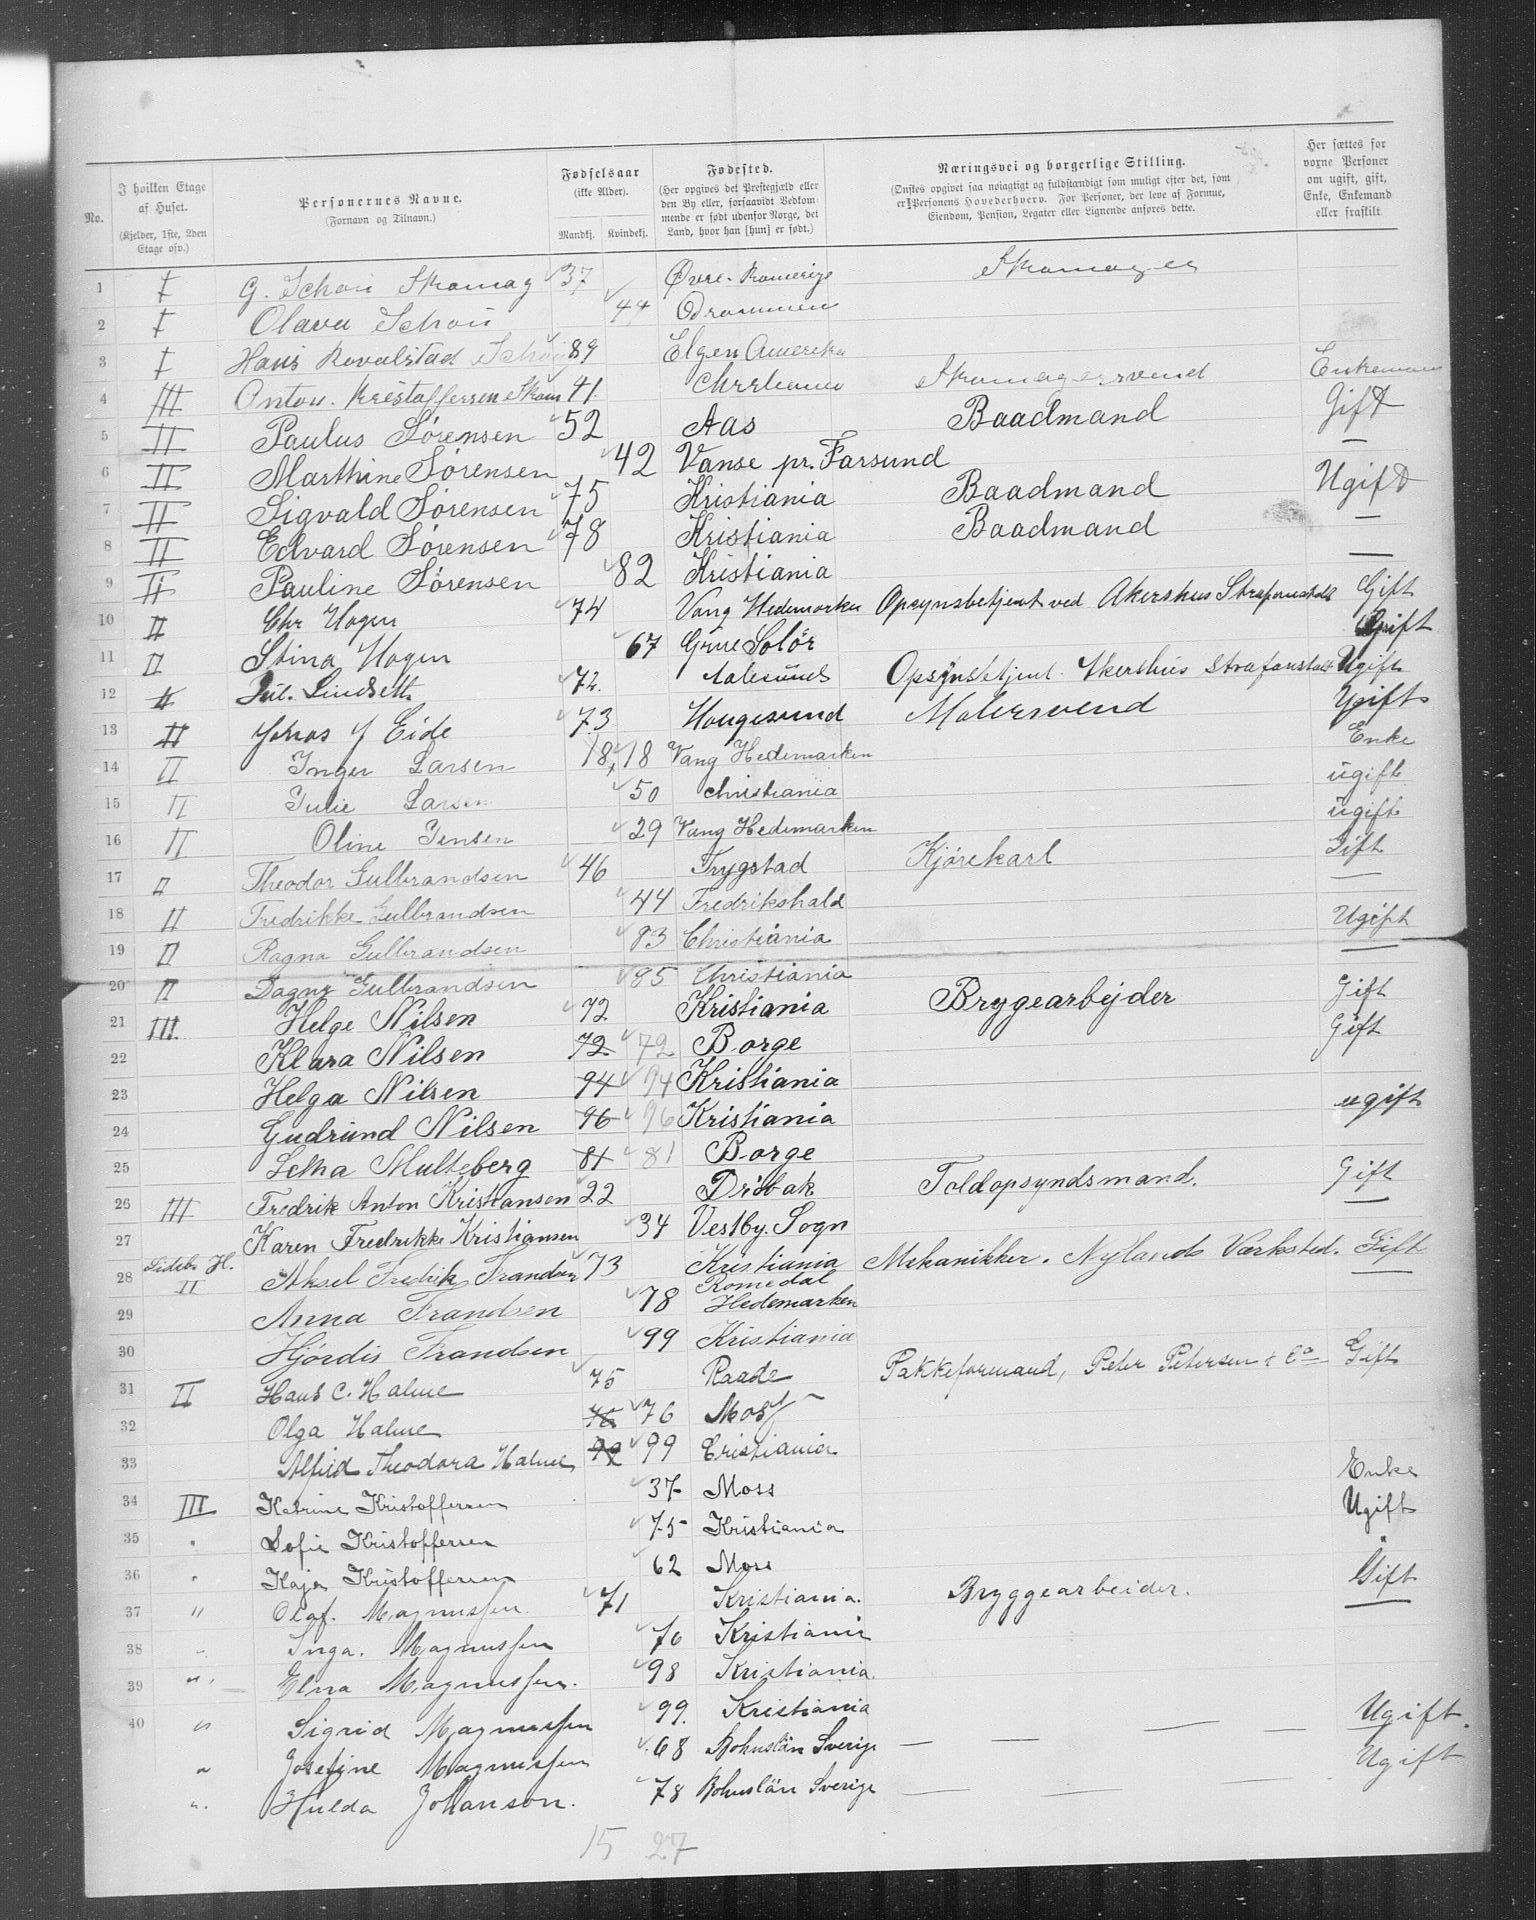 No.
I hvilken Etage af Huset. (Kjelder, 1ste, 2den Etage osv.)
Personernes Navne. (Fornavn og Tilnavn.)
Fødselsaar (ikke Alder). Mandkj. Kvindekj.
Fødested. (Her opgives det Prestegjæld eller den By eller, forsaavidt Bedkommende er født udenfor Norge, det Land, hvor han [hun] er født.)
Næringsvei og borgerlige Stilling. (Ønskes opgivet saa nøiagtigt og fuldstændigt som muligt efter det, som er Personens Hovederhverv. For Personer, der leve af Formue, Eiendom, Pension, Legater eller Lignende anføres dette.
Her sættes for voxne Personer om ugift, gift, Enke, Enkemand eller fraskilt.
1 I G. Schou Skomag 37 Øvre-Romerige Skomager
2 I Olava Schou 44 Drammen
3 I Hans Schou 89 Elgen Amerika
4 III Anton Kristoffersen Skom 41. Skomagersvend Enkemand
5 II Paulus Sørensen 52 Aas Baadmand Gift
6 II Marthine Sørensen 42 Vanse pr. Farsund —
7 II Sigvald Sørensen 75 Kristiania Baadmand Ugift
8 II Edvard Sørensen 78 Kristiania Baadmand —
9 II Pauline Sørensen 82 Kristiania —
10 II Chr Hagen 74 Vang Hedemarken Opsynsbetjent ved Akershus Strafanstalt Gift
11 II Stina Hagen 67 Grue Solør Gift
12 II Jul. Lindseth 72. Aalesund Opsynsbetjent Akershus Strafanstalt Ugift
13 II Johas J Eide 73 Haugesund Malersvend Ugift
14 II Inger Larsen 18 18 Vang Hedemarken Enke
15 II Julie Larsen 50 christiania ugift
16 II Oline Jensen 29 Vang Hedemarken ugift
17 II Theodor Gulbrandsen 46 Trygstad Kjørekarl Gift
18 II Fredrikke Gulbrandsen 44 Fredrikshald —
19 II Ragna Gulbrandsen 83 Christiania Ugift
20 II Dagny Gulbrandsen 85 Christiania —
21 III Helge Nilsen 72 Kristiania Bryggearbejder Gift
22 Klara Nilsen 72 72 Borge Gift
23 Helga Nilsen 94 94 Kristiania
24 Gudrund Nilsen 96 96 Kristiania ugift
25 Lena Multeberg 81 81 Borge
26 III Fredrik Anton Kristiansen 22 Drøbak Toldopsyndsmand. Gift
27 Karen Fredrikke Kristiansen 34 Vestby. Sogn —
28 Sideb. H. II Aksel Fredrik Frandsen 73 Kristiania Mekanikker. Nylands Værksted. Gift
29 Anna Frandsen 78 Romedal Hedemarken —
30 Hjørdis Frandsen 99 Kristiania
31 II Hans C. Halme 75 Raade Pakkeformand, Peter Petersen & Co Gift
32 Olga Halme 76 76 Moss
33 Alfild Theodora Halme 99 99 Cristiania
34 III Katrine Kristoffersen 37 Moss Enke
35 " Sofie Kristoffersen 75 Kristiania Ugift
36 " Kaja Kristoffersen 62 Moss "
37 " Olaf. Magnussen 71 Kristiania. Bryggearbeider. Gift
38 " Inga. Magnussen 76 Kristiania —
39 " Elna Magnussen. 98 Kristiania.
40 " Sigrid Magnussen 99. Kristiania
" Josefine Magnussen 68 Bohuslän Sverige — — — — Ugift.
" Hulda Johanson. 78 Bohuslän Sverige — — Ugift
15 27